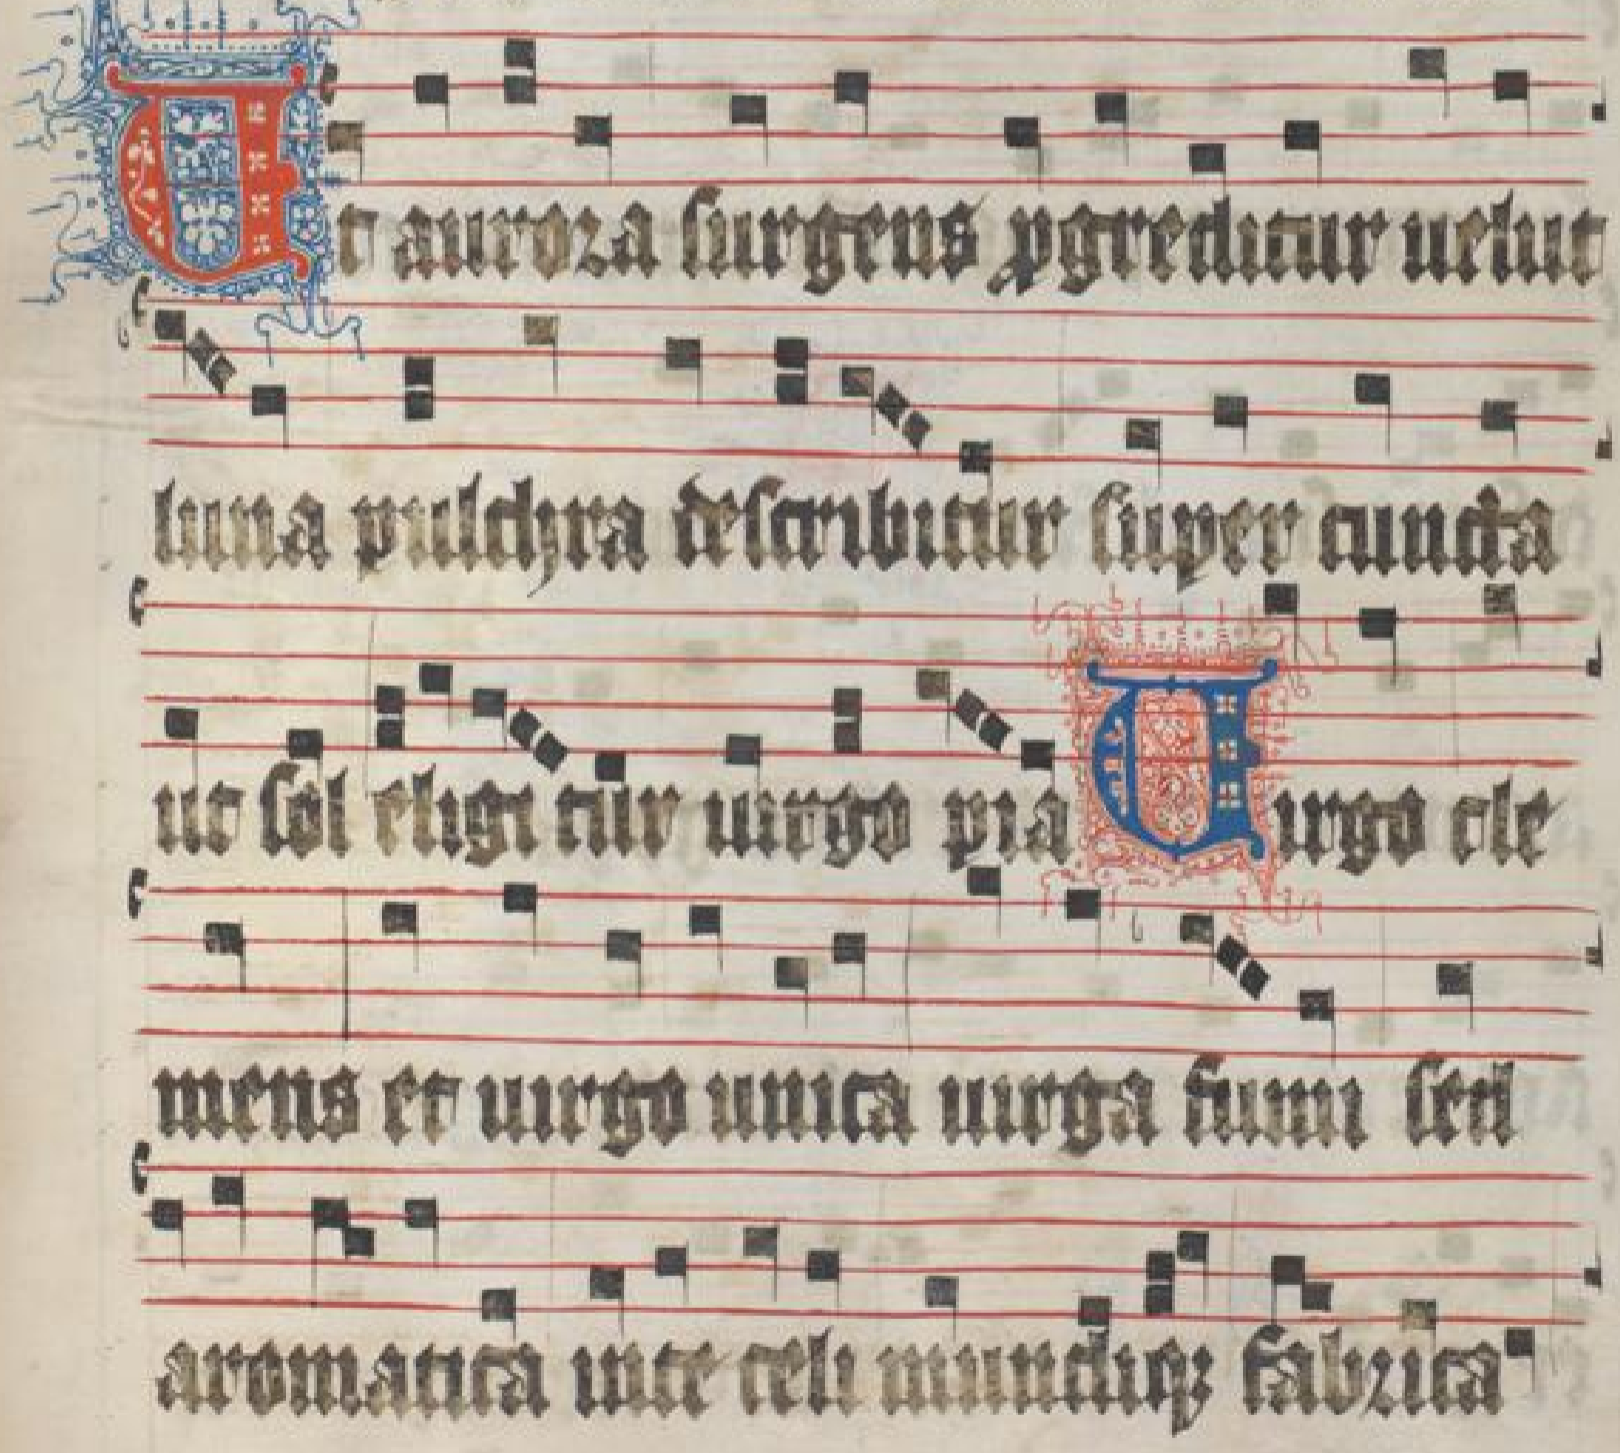 Ut aurora surgens pgreditur uelut
luna pulchra describitur super cuncta
ut sol eligi tur uirgo pia Uirgo cle
mens et uirgo unica uirga fumi set
aromatica inte celi mundiqꝫ fabrica